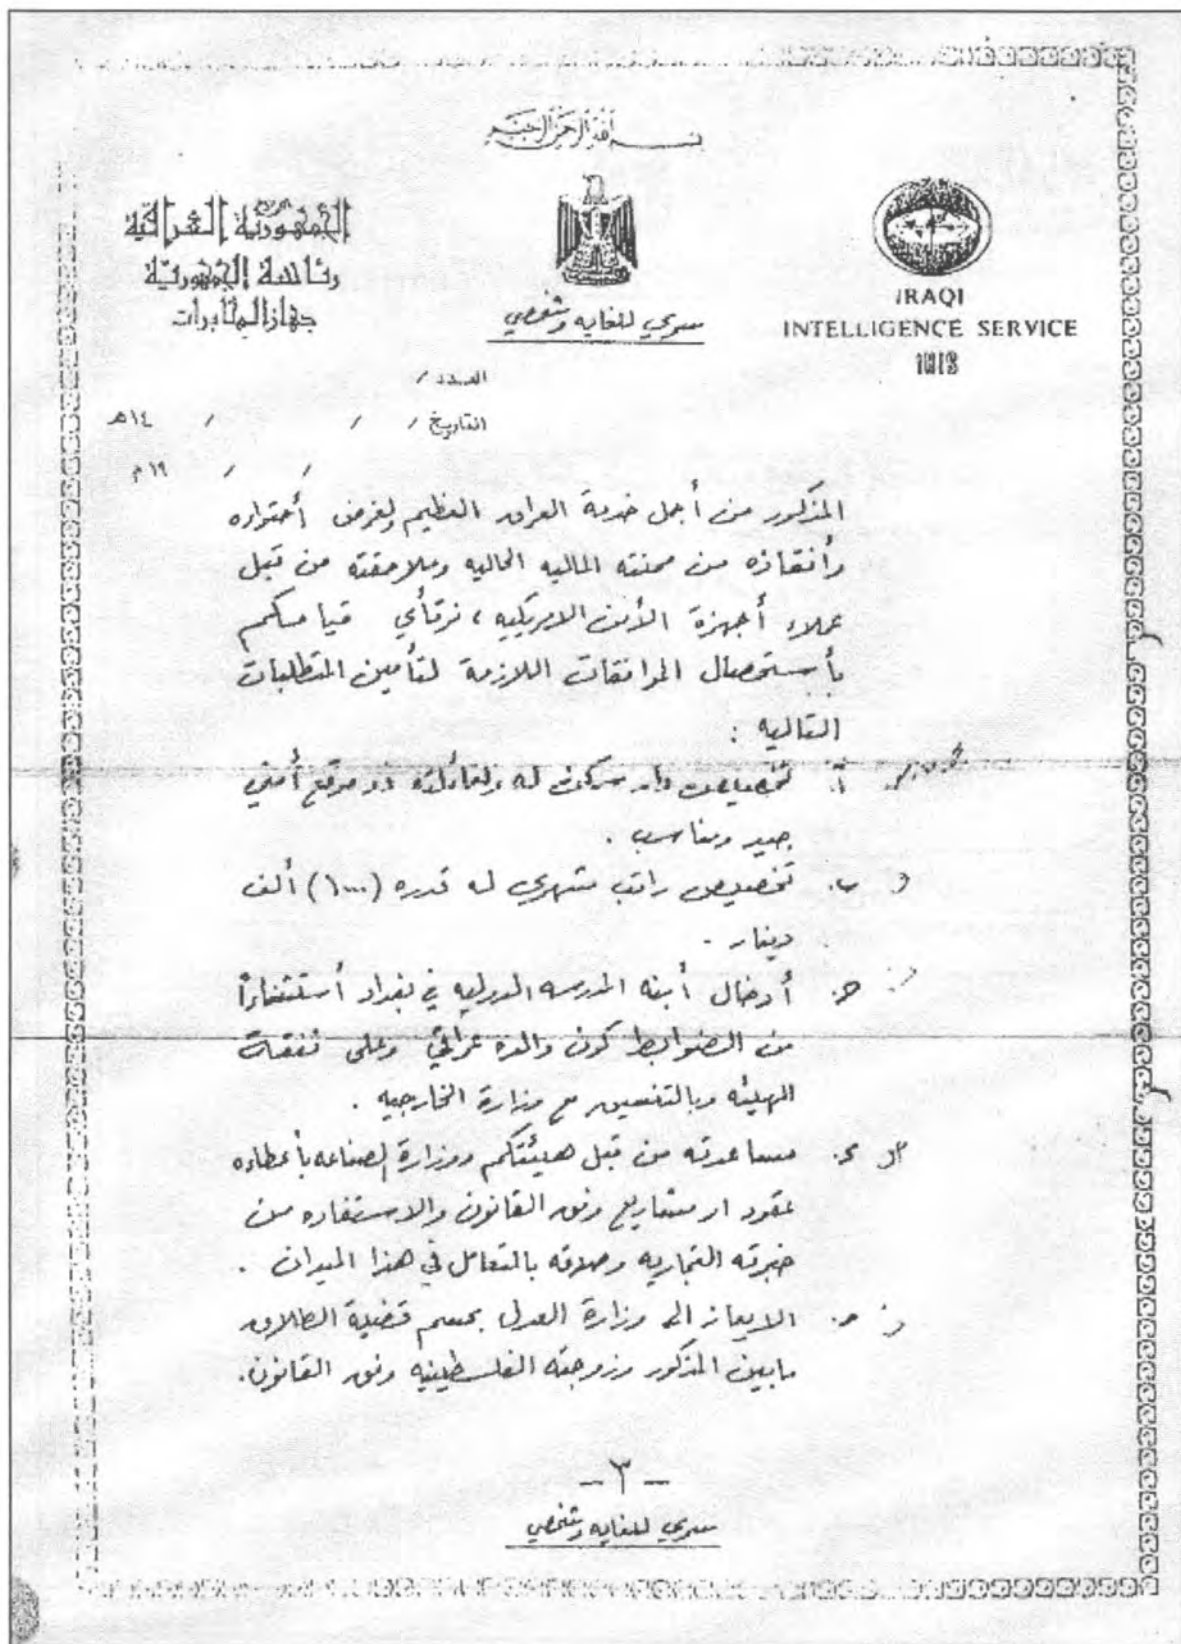 بسم الله الرحمن الرحيم
الجمهورية العراقية
رئاسة الجمهورية
جهاز المخابرات
IRAQI
INTELLIGENCE SERVICE
سري للغايه وشخصي
العدد /
التاريخ / / / ١٤ هـ
/ / ١٩ م
المذكور من أجل خدمة العراق العظيم ولغرض أحتواءه
وأنقاذه من محنته الماليه الحاليه وملاحقته من قبل
عملاء أجهزة الأمن الامريكيه ، نرتأي قيامكم
بأستحصال الموافقات اللازمة لتأمين المتطلبات
التاليه :
أ. تخصيص دار سكن له ولعائلته ذو موقع أمني
جيد ومناسب .
ب. تخصيص راتب شهري له قدره (١٠٠٠) ألف
دينار .
جـ. أدخال أبنه المدرسه الدوليه في بغداد أستثناءاً
من الضوابط كون والده عراقي وعلى نفقة
الهيئه وبالتنسيق مع وزارة الخارجيه .
د. مساعدته من قبل هيئتكم ووزارة الصناعه بأعطاءه
عقود او مشاريع وفق القانون والاستفاده من
خبرته التجاريه وصدقه بالتعامل في هذا الميدان .
هـ. الايعاز الى وزارة العدل بحسم قضية الطلاق
مابين المذكور وزوجته الفلسطينيه وفق القانون.
- ٣ -
سري للغايه وشخصي